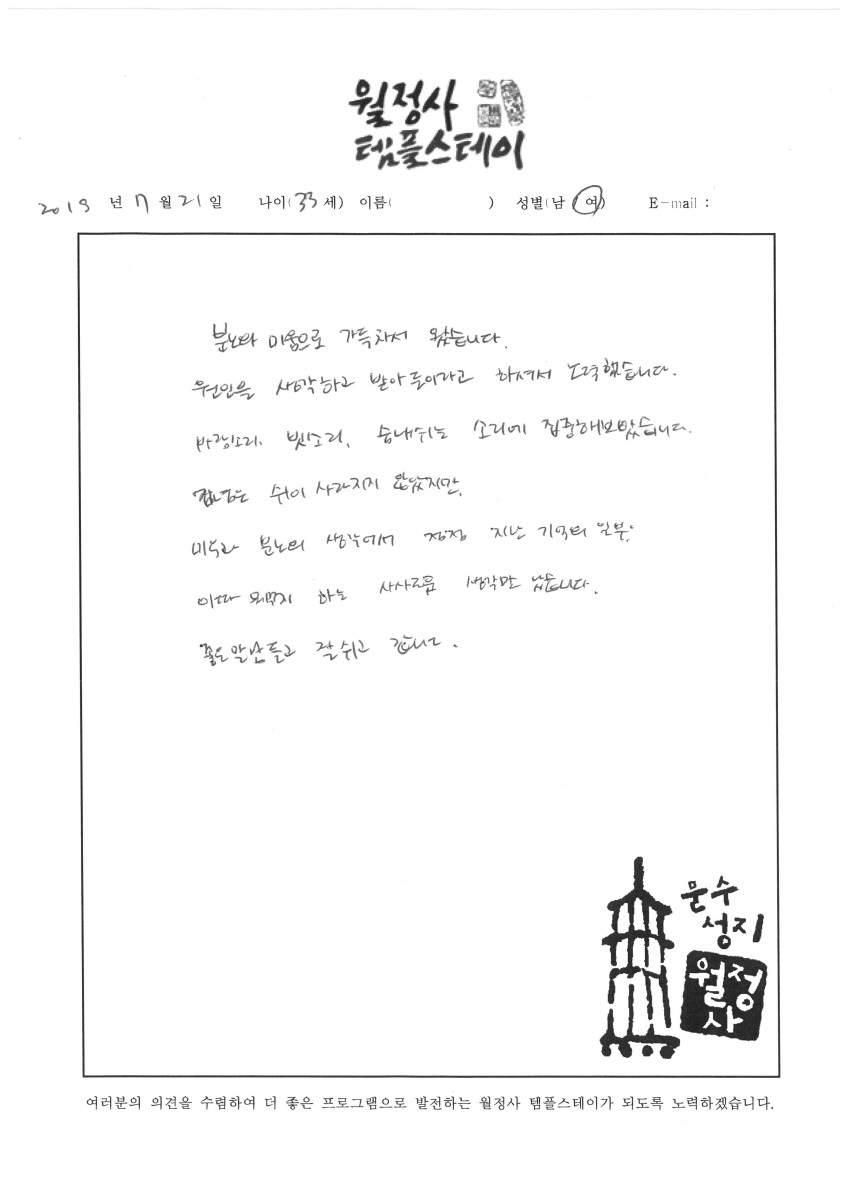 월정사
템플스테이
2019 년 7 월 21 일 나이(33 세) 이름( ) 성별(남/여) E-mail :
분노와 미움으로 가득차서 왔습니다.
원인을 생각하고 받아들이라고 하셔서 노력했습니다.
바람소리, 빗소리, 숨내쉬는 소리에 집중해보았습니다.
잡념은 쉬이 사라지지 않았지만,
미움과 분노의 생각에서 점점 지난 기억의 일부,
이따 뭐먹지 하는 사사로운 생각만 남습니다.
좋은말씀 듣고 잘쉬고 갑니다.
문수
성지
월정
사
여러분의 의견을 수렴하여 더 좋은 프로그램으로 발전하는 월정사 템플스테이가 되도록 노력하겠습니다.